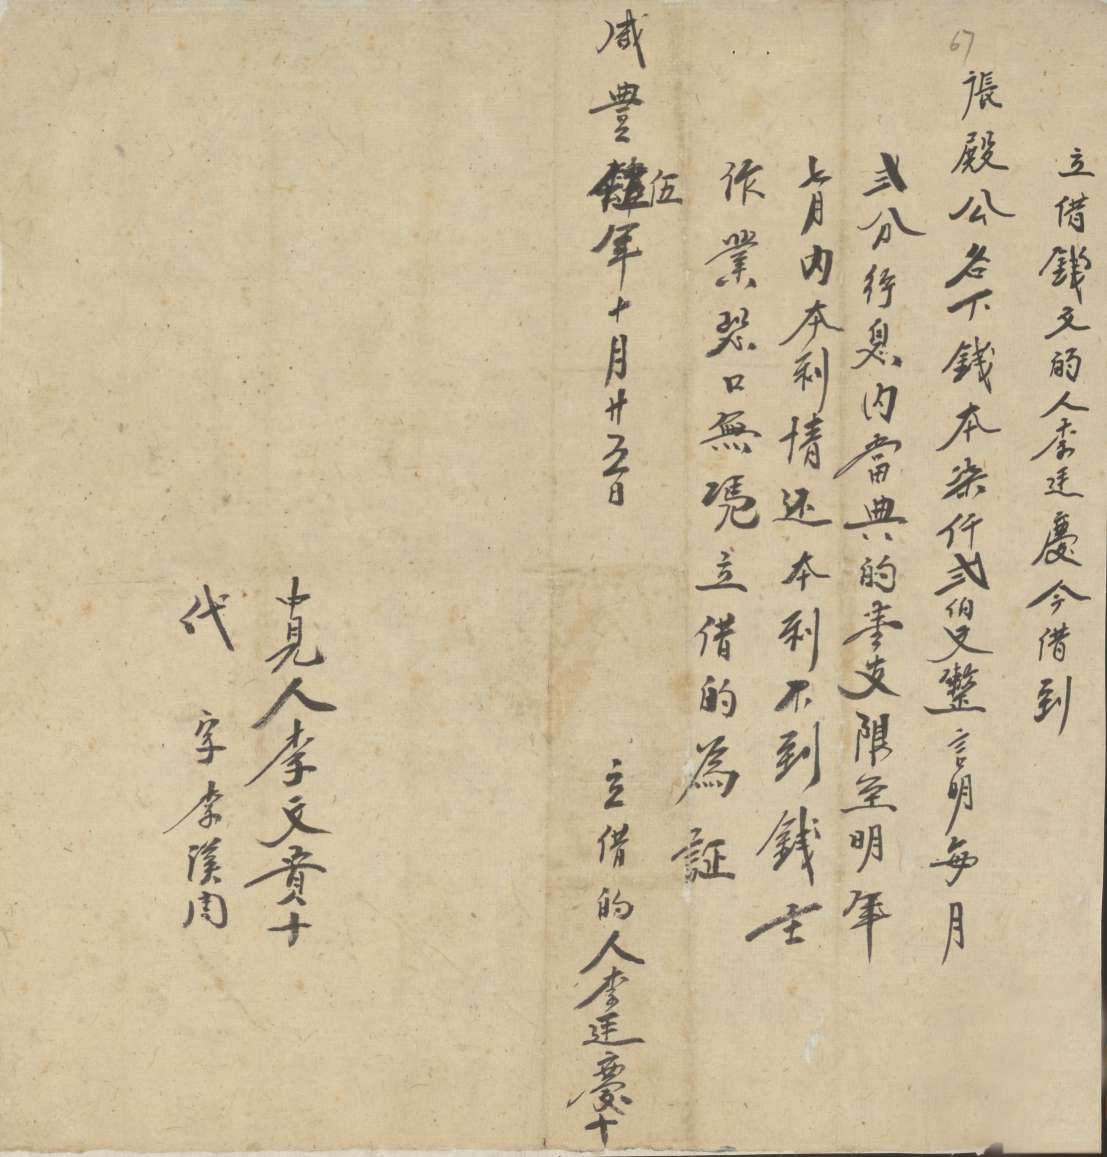 67
立借錢文的人李廷慶今借到
張殿公名下錢本柒仟弍伯文整言明每月
弍分行息内當典的
支限至明年
七月内本利情还本利不到錢主
作業恐口無凴立借的為証
咸豊肆伍年十月廿五日
立借的人李廷慶十
中見人李文貴十
代 字李漢周